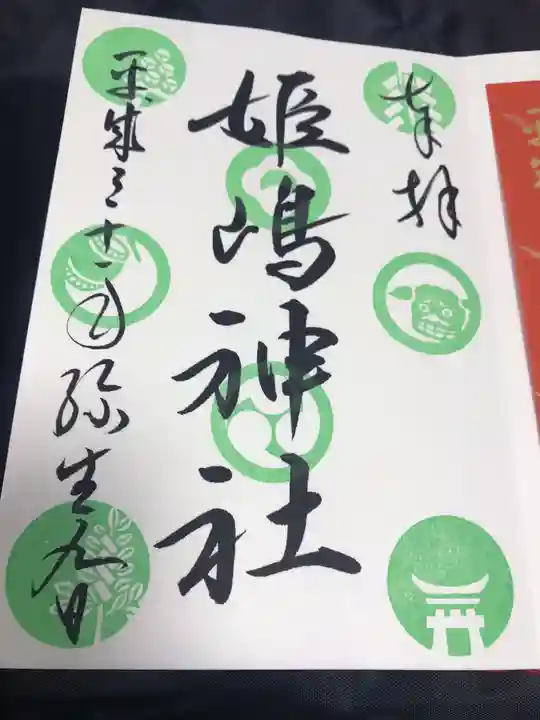 奉拝
姫嶋神社
平成三十一年弥生九日